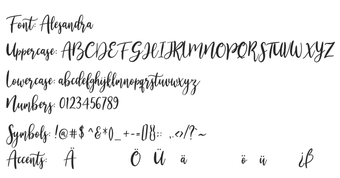 Font: Alesandra
Uppercase: ABCDEFGHIJKLMNOPQRSTUVWXYZ
Lowercase: abcdefghijklmnopqrstuvwxyz
Numbers: 0123456789
Symbols: !@#$^&*()_+-=[]{}:;,.<>/?~
Accents: Ä Ö Ü ä ö ü ¿ß